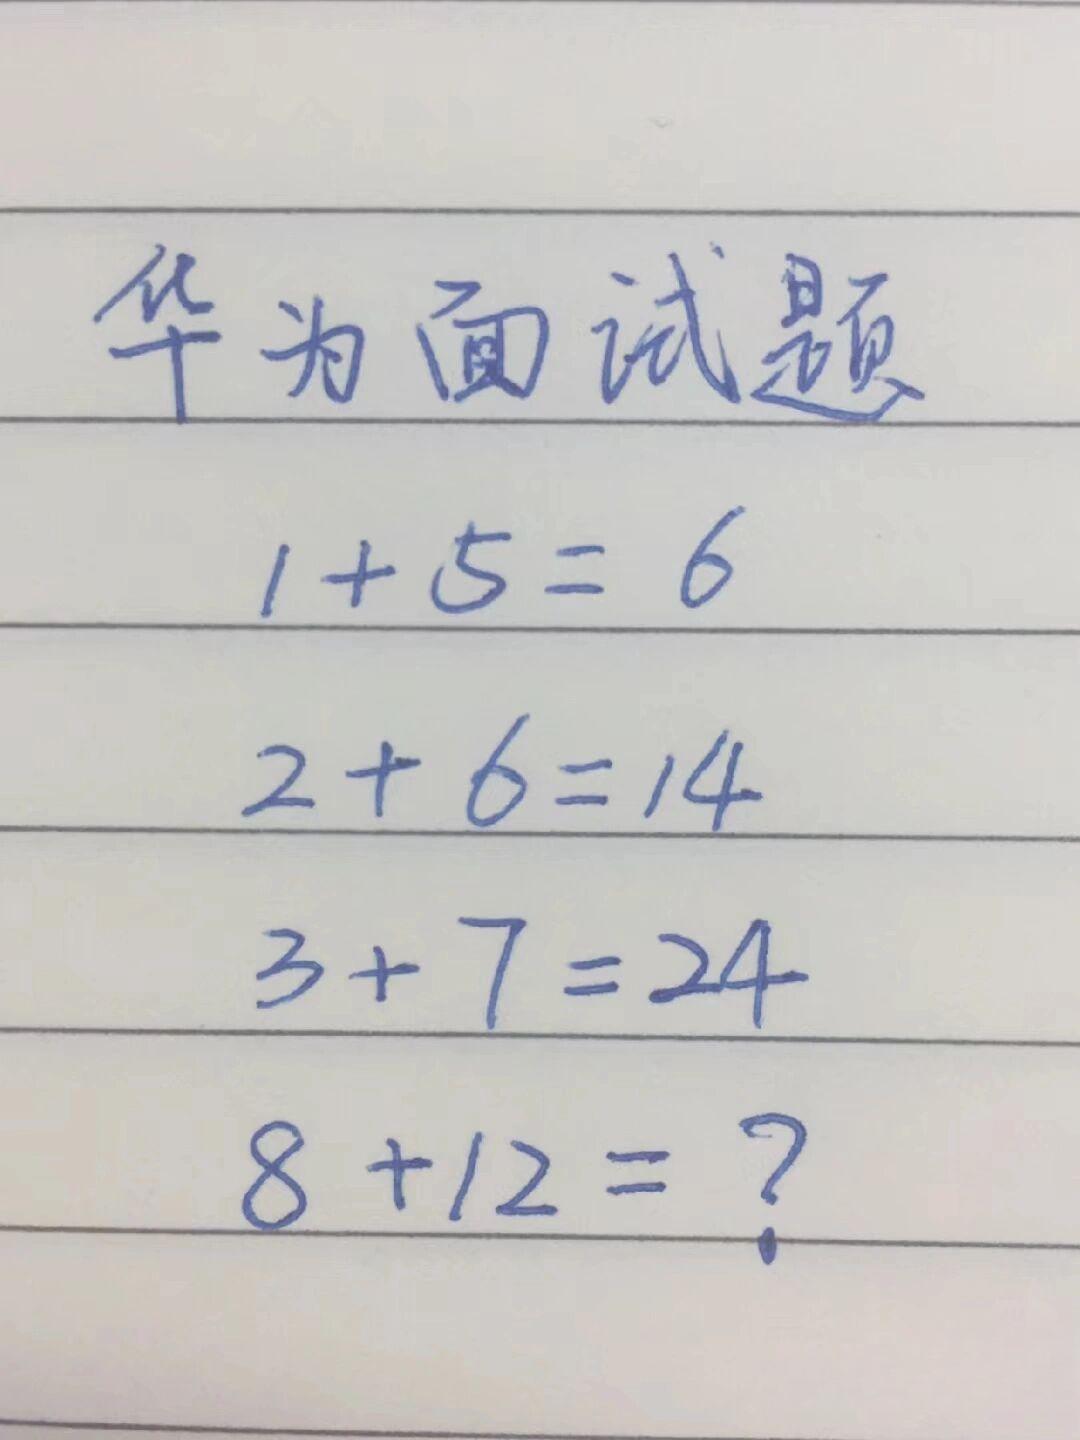 华为面试题
1+5=6
2+6=14
3+7=24
8+12=?